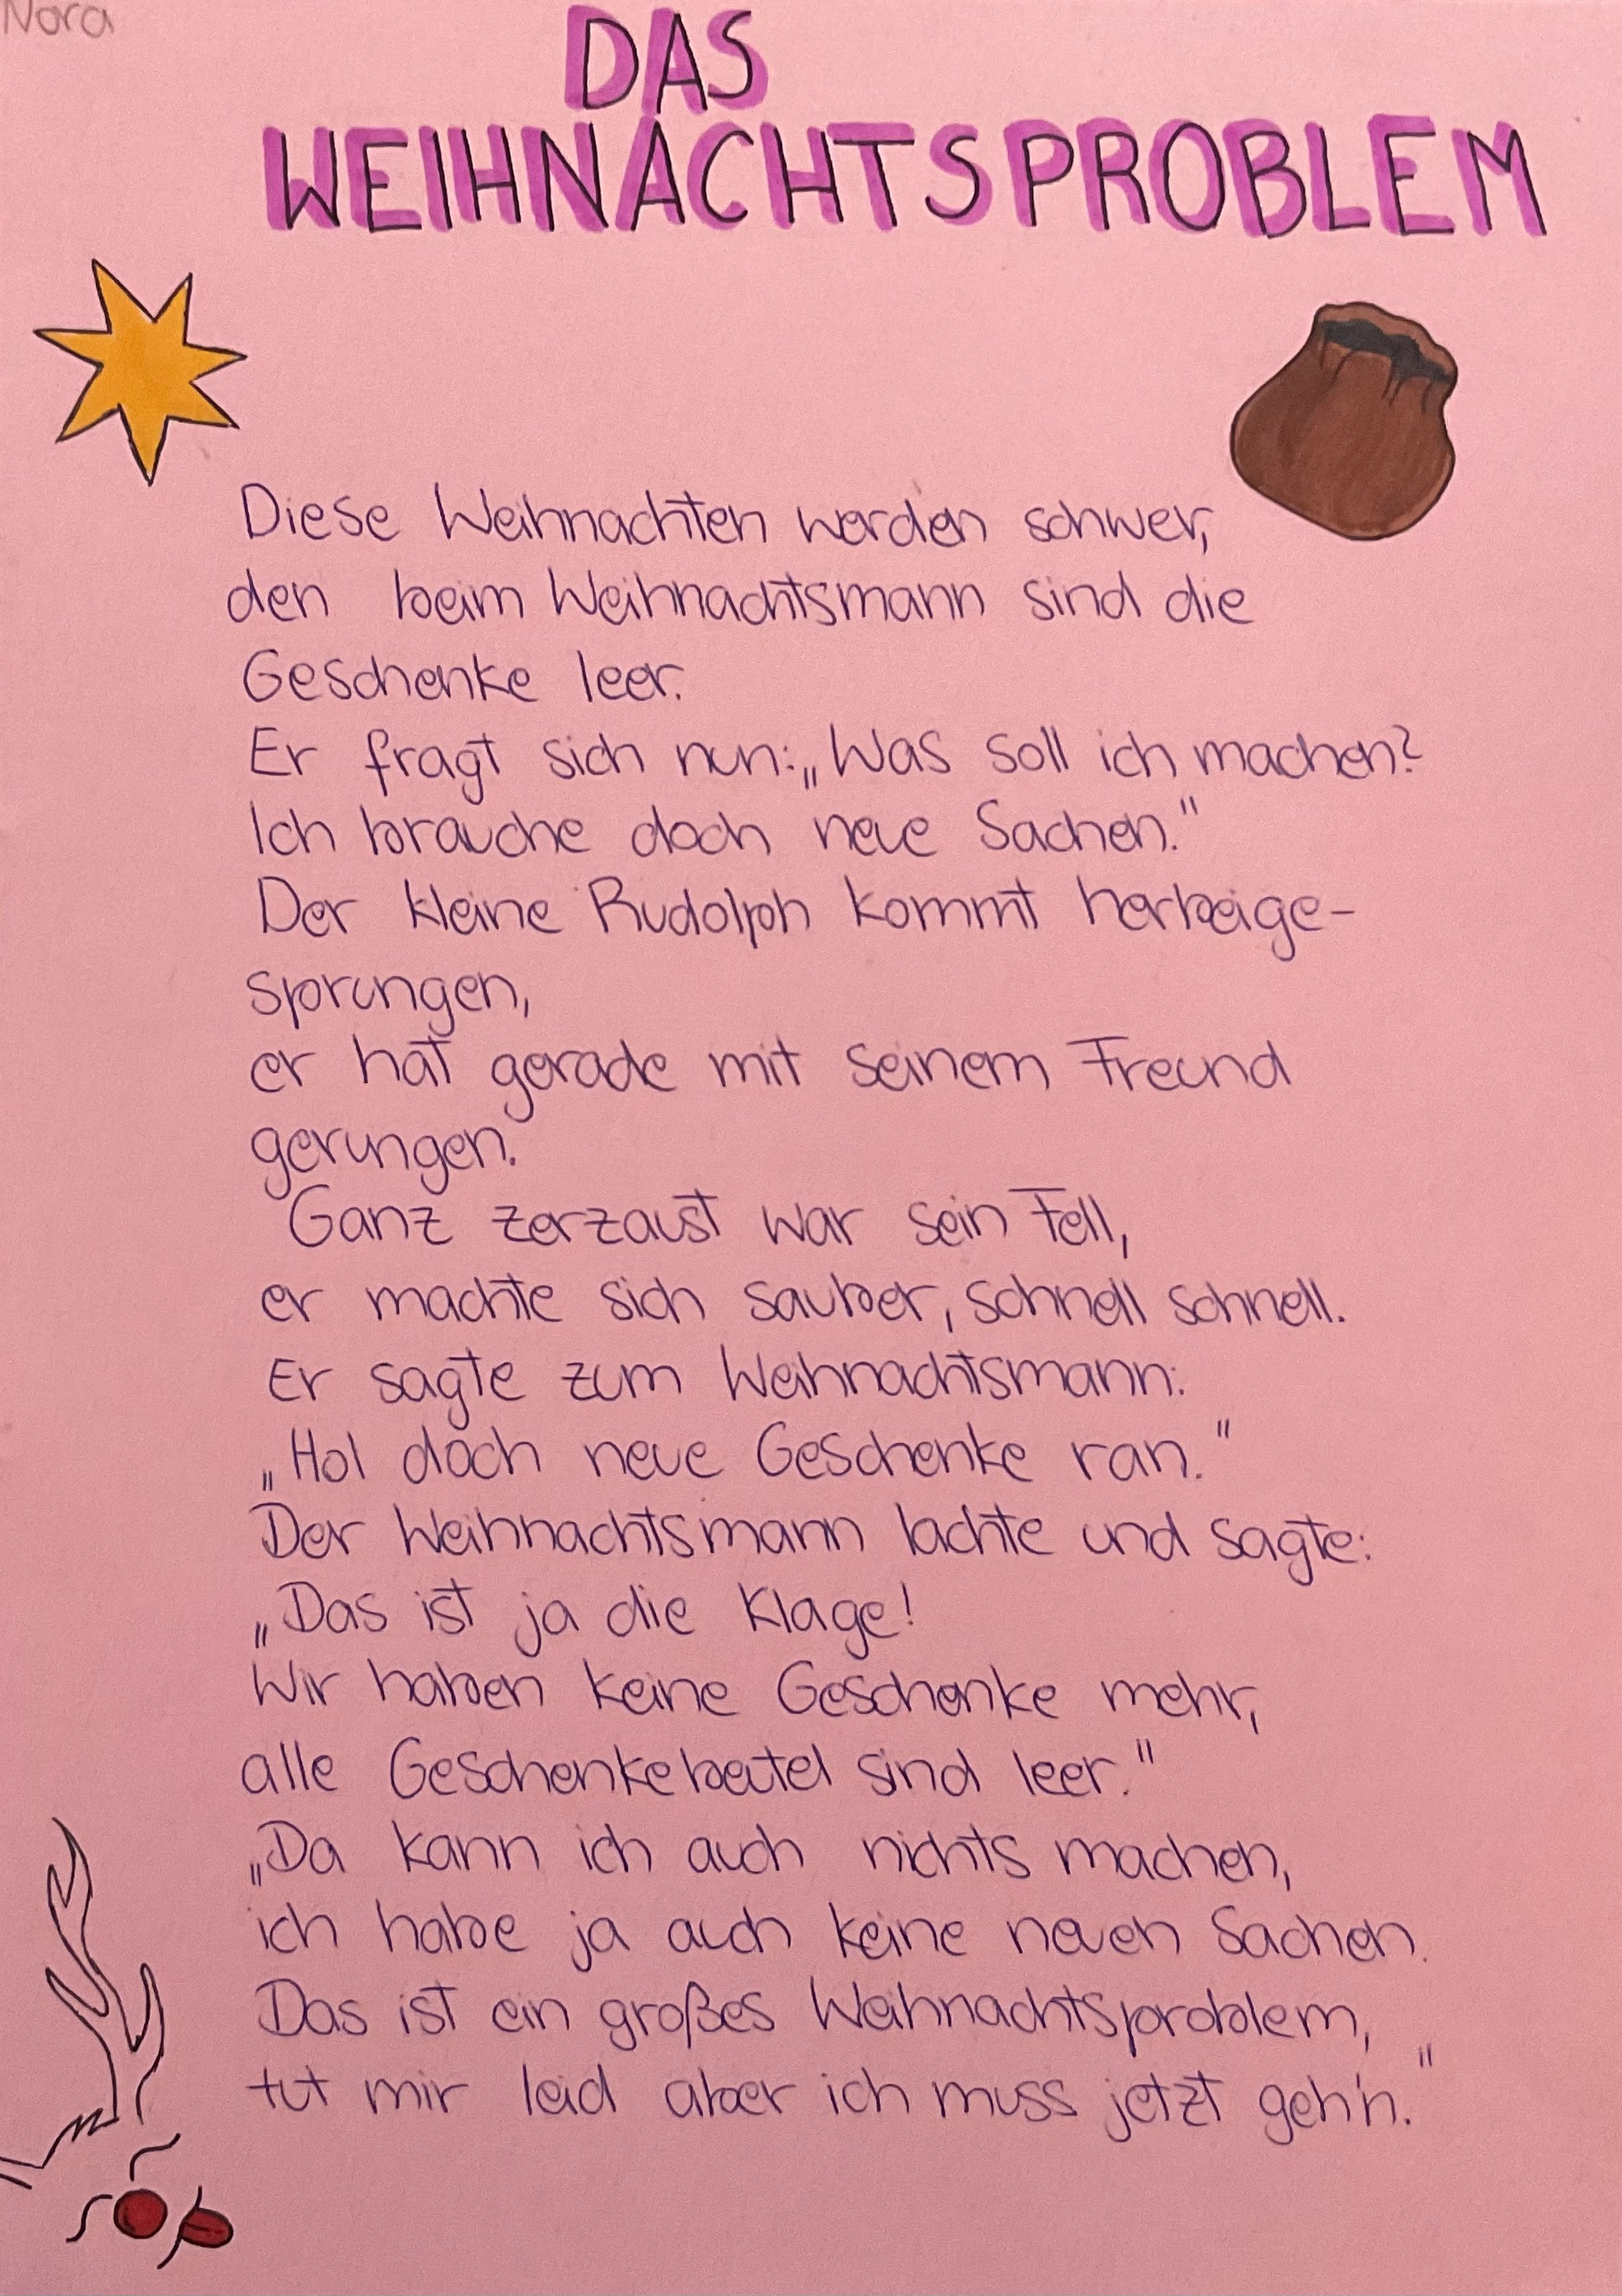 Nora
DAS
WEIHNACHTSPROBLEM
Diese Weihnachten werden schwer,
den beim Weihnachtsmann sind die
Geschenke leer.
Er fragt sich nun: „Was soll ich machen?
Ich brauche doch neue Sachen."
Der kleine Rudolph kommt herbeige-
sprungen,
er hat gerade mit seinem Freund
gerungen.
Ganz zerzaust war sein Fell,
er machte sich sauber, schnell schnell.
Er sagte zum Weihnachtsmann:
„Hol doch neue Geschenke ran."
Der Weihnachtsmann lachte und sagte:
„Das ist ja die Klage!
Wir haben keine Geschenke mehr,
alle Geschenkebeutel sind leer."
„Da kann ich auch nichts machen,
ich habe ja auch keine neuen Sachen.
Das ist ein großes Weihnachtsproblem,
tut mir leid aber ich muss jetzt geh'n."